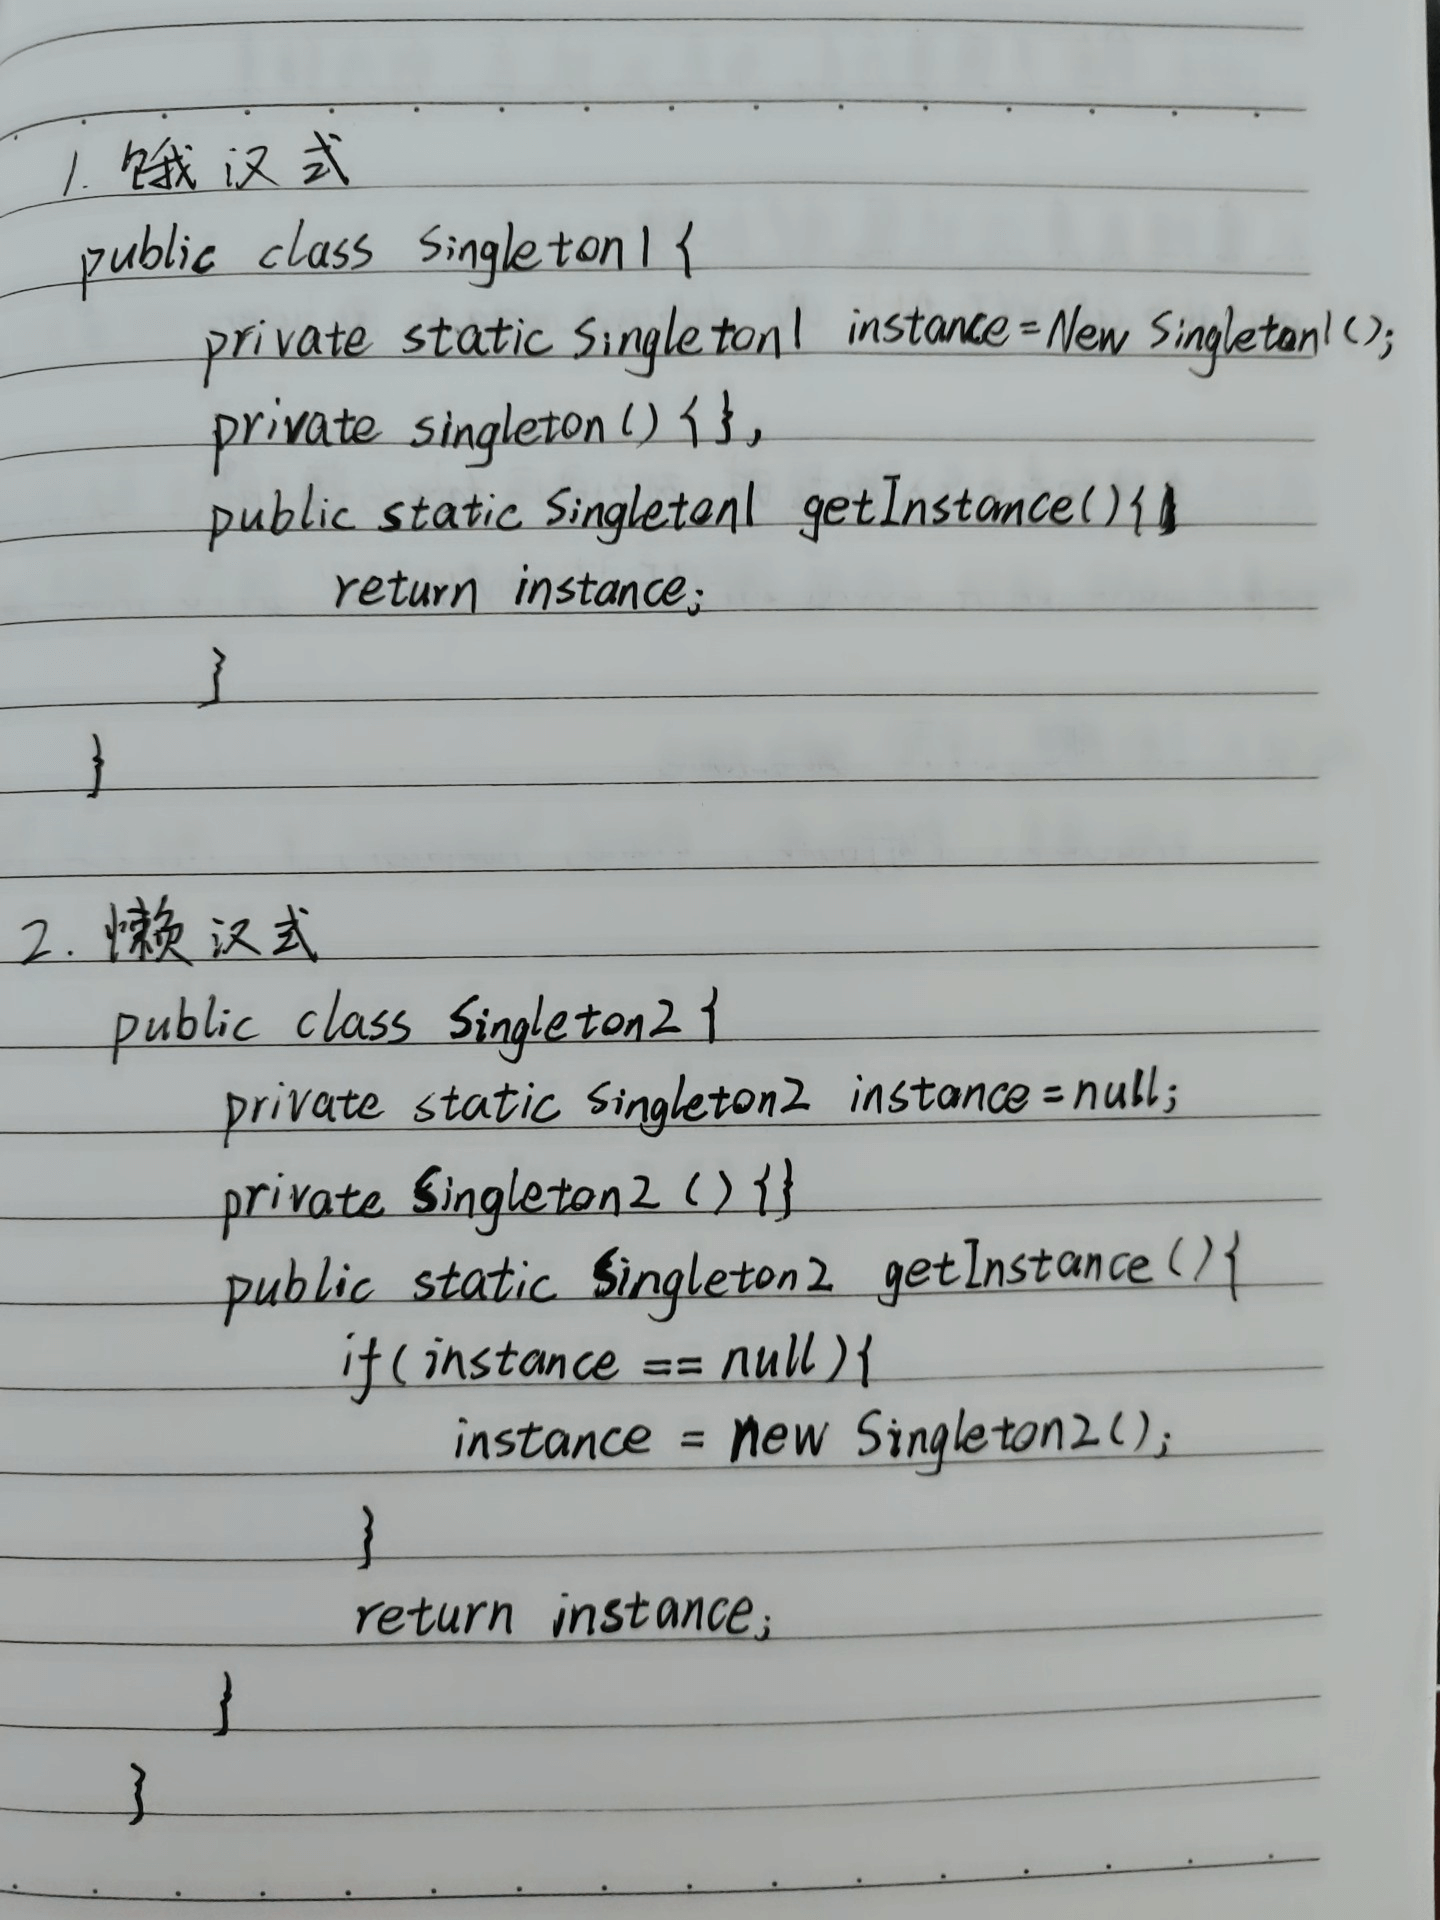 1. 饿汉式
public class Singleton1{
private static Singleton1 instance=New Singleton1();
private singleton(){},
public static Singleton1 getInstance(){
return instance;
}
}
2. 懒汉式
public class Singleton2{
private static Singleton2 instance=null;
private Singleton2(){}
public static Singleton2 getInstance(){
if(instance == null){
instance = new Singleton2();
}
return instance;
}
}